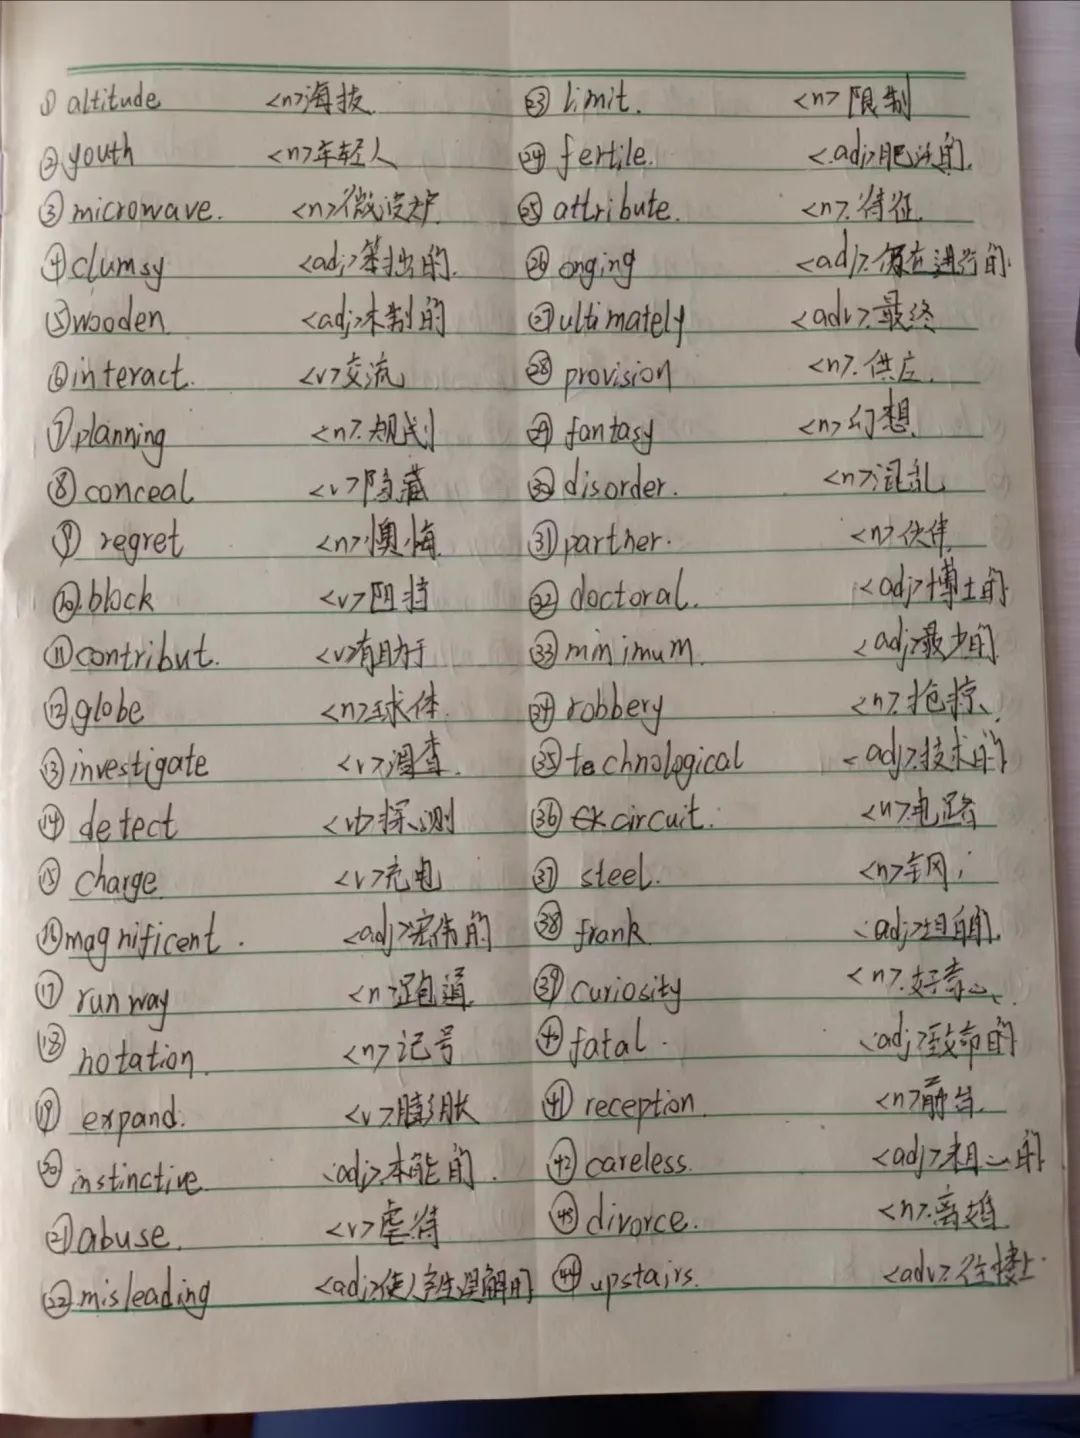 ① altitude <n>海拔 ㉓ limit. <n>限制
② youth <n>年轻人 ㉔ fertile. <adj>肥沃的.
③ microwave. <n>微波炉 ㉕ attribute. <n>.特征
④ clumsy <adj>笨拙的. ㉖ onging <adj>.仍在进行的.
⑤ wooden <adj>木制的 ㉗ ultimately <adv>.最终
⑥ interact. <v>交流 ㉘ provision <n>.供应.
⑦ planning <n>.规划 ㉙ fantasy <n>幻想
⑧ conceal <v>隐藏 ㉚ disorder. <n>混乱
⑨ regret <n>懊悔 ㉛ partner. <n>伙伴
⑩ block <v>阻挡 ㉜ doctoral. <adj>博士的
⑪ contribut. <v>有助于 ㉝ minimum. <adj>最少的
⑫ globe <n>球体. ㉞ robbery <n>.抢掠
⑬ investigate <v>调查. ㉟ technological <adj>.技术的
⑭ detect <v>探测 ㊱ circuit. <n>.电路
⑮ charge <v>充电 ㊲ steel. <n>钢
⑯ magnificent. <adj>宏伟的 ㊳ frank <adj>坦白的.
⑰ runway <n>跑道 ㊴ curiosity <n>.好奇心
⑱ notation. <n>记号 ㊵ fatal. <adj>致命的
⑲ expand. <v>膨胀 ㊶ reception. <n>前台.
⑳ instinctive. <adj>.本能的. ㊷ careless. <adj>.粗心的
㉑ abuse. <v>虐待 ㊸ divorce. <n>.离婚
㉒ misleading <adj>使人产生误解的 ㊹ upstairs. <adv>.往楼上.